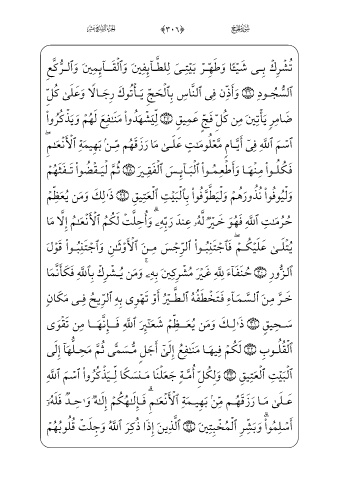 سورة الحج ﴿٣٠٦﴾ الجزء السابع عشر
تُشْرِكْ بِى شَيْـًٔا وَطَهِّرْ بَيْتِىَ لِلطَّآئِفِينَ وَٱلْقَآئِمِينَ وَٱلرُّكَّعِ
ٱلسُّجُودِ ۝ وَأَذِّن فِى ٱلنَّاسِ بِٱلْحَجِّ يَأْتُوكَ رِجَالًا وَعَلَىٰ كُلِّ
ضَامِرٍ يَأْتِينَ مِن كُلِّ فَجٍّ عَمِيقٍ ۝ لِّيَشْهَدُوا۟ مَنَـٰفِعَ لَهُمْ وَيَذْكُرُوا۟
ٱسْمَ ٱللَّهِ فِىٓ أَيَّامٍ مَّعْلُومَـٰتٍ عَلَىٰ مَا رَزَقَهُم مِّنۢ بَهِيمَةِ ٱلْأَنْعَـٰمِ ۖ
فَكُلُوا۟ مِنْهَا وَأَطْعِمُوا۟ ٱلْبَآئِسَ ٱلْفَقِيرَ ۝ ثُمَّ لْيَقْضُوا۟ تَفَثَهُمْ
وَلْيُوفُوا۟ نُذُورَهُمْ وَلْيَطَّوَّفُوا۟ بِٱلْبَيْتِ ٱلْعَتِيقِ ۝ ذَٰلِكَ وَمَن يُعَظِّمْ
حُرُمَـٰتِ ٱللَّهِ فَهُوَ خَيْرٌ لَّهُۥ عِندَ رَبِّهِۦ ۗ وَأُحِلَّتْ لَكُمُ ٱلْأَنْعَـٰمُ إِلَّا مَا
يُتْلَىٰ عَلَيْكُمْ ۖ فَٱجْتَنِبُوا۟ ٱلرِّجْسَ مِنَ ٱلْأَوْثَـٰنِ وَٱجْتَنِبُوا۟ قَوْلَ
ٱلزُّورِ ۝ حُنَفَآءَ لِلَّهِ غَيْرَ مُشْرِكِينَ بِهِۦ ۚ وَمَن يُشْرِكْ بِٱللَّهِ فَكَأَنَّمَا
خَرَّ مِنَ ٱلسَّمَآءِ فَتَخْطَفُهُ ٱلطَّيْرُ أَوْ تَهْوِى بِهِ ٱلرِّيحُ فِى مَكَانٍ
سَحِيقٍ ۝ ذَٰلِكَ وَمَن يُعَظِّمْ شَعَـٰٓئِرَ ٱللَّهِ فَإِنَّهَا مِن تَقْوَى
ٱلْقُلُوبِ ۝ لَكُمْ فِيهَا مَنَـٰفِعُ إِلَىٰٓ أَجَلٍ مُّسَمًّى ثُمَّ مَحِلُّهَآ إِلَى
ٱلْبَيْتِ ٱلْعَتِيقِ ۝ وَلِكُلِّ أُمَّةٍ جَعَلْنَا مَنسَكًا لِّيَذْكُرُوا۟ ٱسْمَ ٱللَّهِ
عَلَىٰ مَا رَزَقَهُم مِّنۢ بَهِيمَةِ ٱلْأَنْعَـٰمِ ۗ فَإِلَـٰهُكُمْ إِلَـٰهٌ وَٰحِدٌ فَلَهُۥٓ
أَسْلِمُوا۟ ۗ وَبَشِّرِ ٱلْمُخْبِتِينَ ۝ ٱلَّذِينَ إِذَا ذُكِرَ ٱللَّهُ وَجِلَتْ قُلُوبُهُمْ